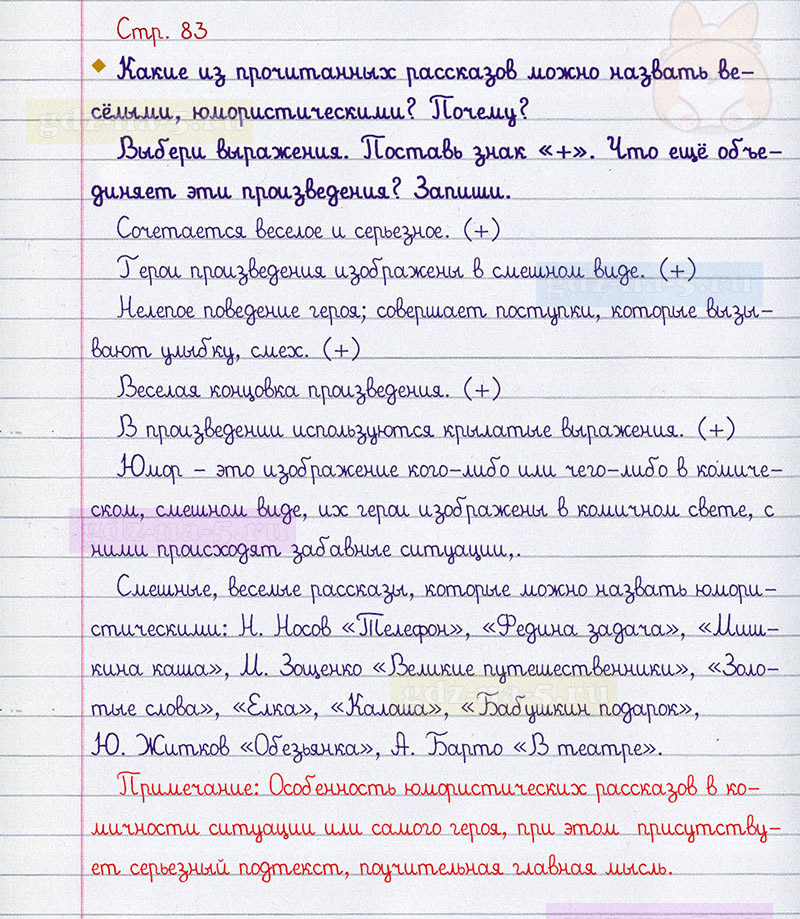 Стр. 83
Какие из прочитанных рассказов можно назвать ве-
сёлыми, юмористическими? Почему?
Выбери выражения. Поставь знак «+». Что ещё объе-
диняет эти произведения? Запиши.
Сочетается веселое и серьезное. (+)
Герои произведения изображены в смешном виде. (+)
Нелепое поведение героя; совершает поступки, которые вызы-
вают улыбку, смех. (+)
Веселая концовка произведения. (+)
В произведении используются крылатые выражения. (+)
Юмор – это изображение кого-либо или чего-либо в комиче-
ском, смешном виде, их герои изображены в комичном свете, с
ними происходят забавные ситуации,.
Смешные, веселые рассказы, которые можно назвать юмори-
стическими: Н. Носов «Телефон», «Федина задача», «Миш-
кина каша», М. Зощенко «Великие путешественники», «Золо-
тые слова», «Елка», «Калоша», «Бабушкин подарок»,
Ю. Житков «Обезьянка», А. Барто «В театре».
Примечание: Особенность юмористических рассказов в ко-
мичности ситуации или самого героя, при этом присутству-
ет серьезный подтекст, поучительная главная мысль.
gdz-na-5.ru
gdz-na-5.ru
gdz-na-5.ru
gdz-na-5.ru